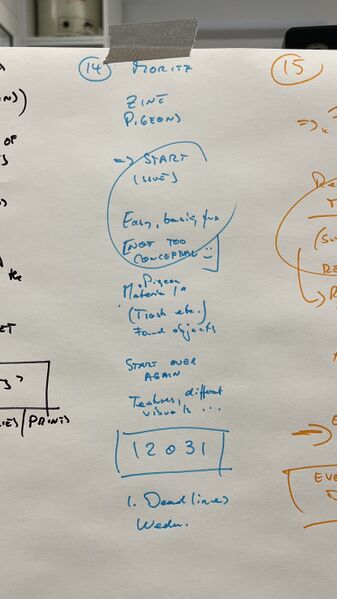 14 MORITZ
ZINE
PIGEONS
=> START
(ISSUES)
Easy, basic, fun
[NOT TOO
CONCEPTUAL :)]
"Pigeon
Material"
(Trash etc.)
Found objects
START OVER
AGAIN
Textures, different
visuals ...
12031
1. Deadlines
Wedn.
15
OF
THE
PRINTS